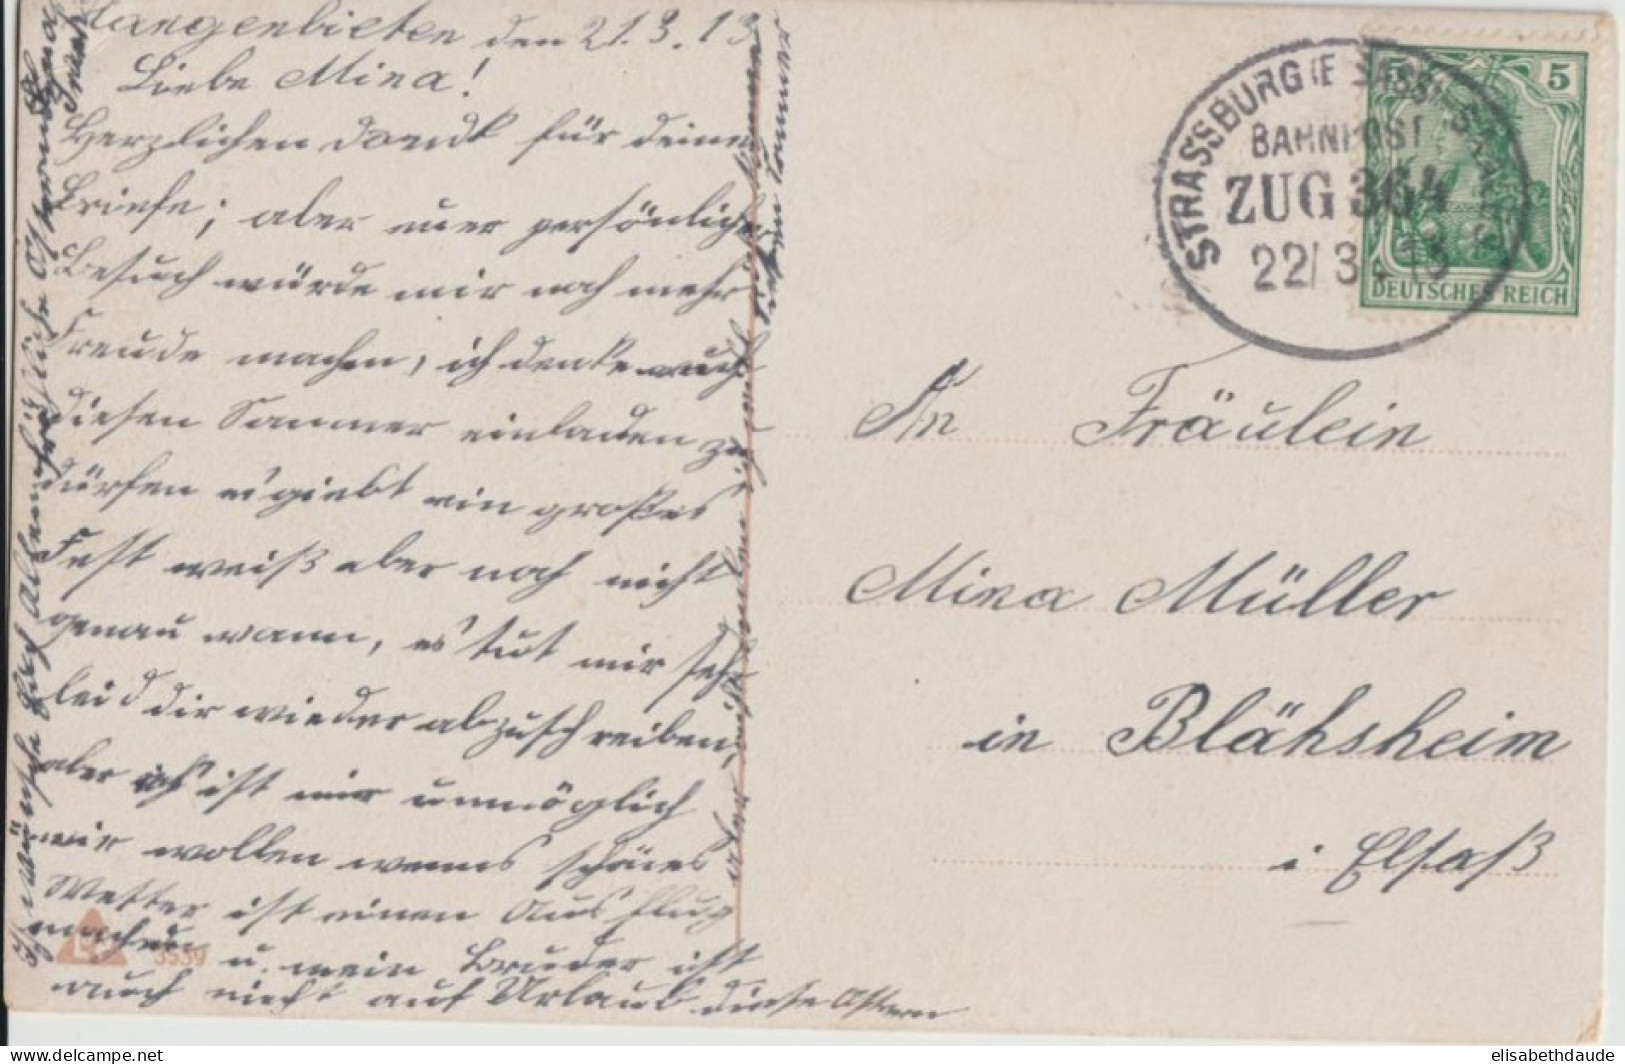 Hangenbieten den 21.3.13
Liebe Mina!
Herzlichen Dank für deine
Briefe; aber euer persönlicher
Besuch würde mir noch mehr
Freude machen, ich denke euch
diesen Sommer einladen zu
dürfen es giebt ein großes
Fest weiß aber noch nicht
genau wann, es tut mir sehr
leid dir wieder abzuschreiben,
aber es ist mir unmöglich
wir wollen wenns schönes
Wetter ist einen Ausflug
machen u. mein Bruder ist
auch nicht auf Urlaub diese Ostern
Ich wünsche Euch Allen fröhliche Ostern
STRASSBURG (ELSASS)
BAHNPOST
ZUG 364
22/3. 13
5 5
DEUTSCHES REICH
An Fräulein
Mina Müller
in Blähsheim
i Elsaß
3539
www.delcampe.net
elisabethdaude